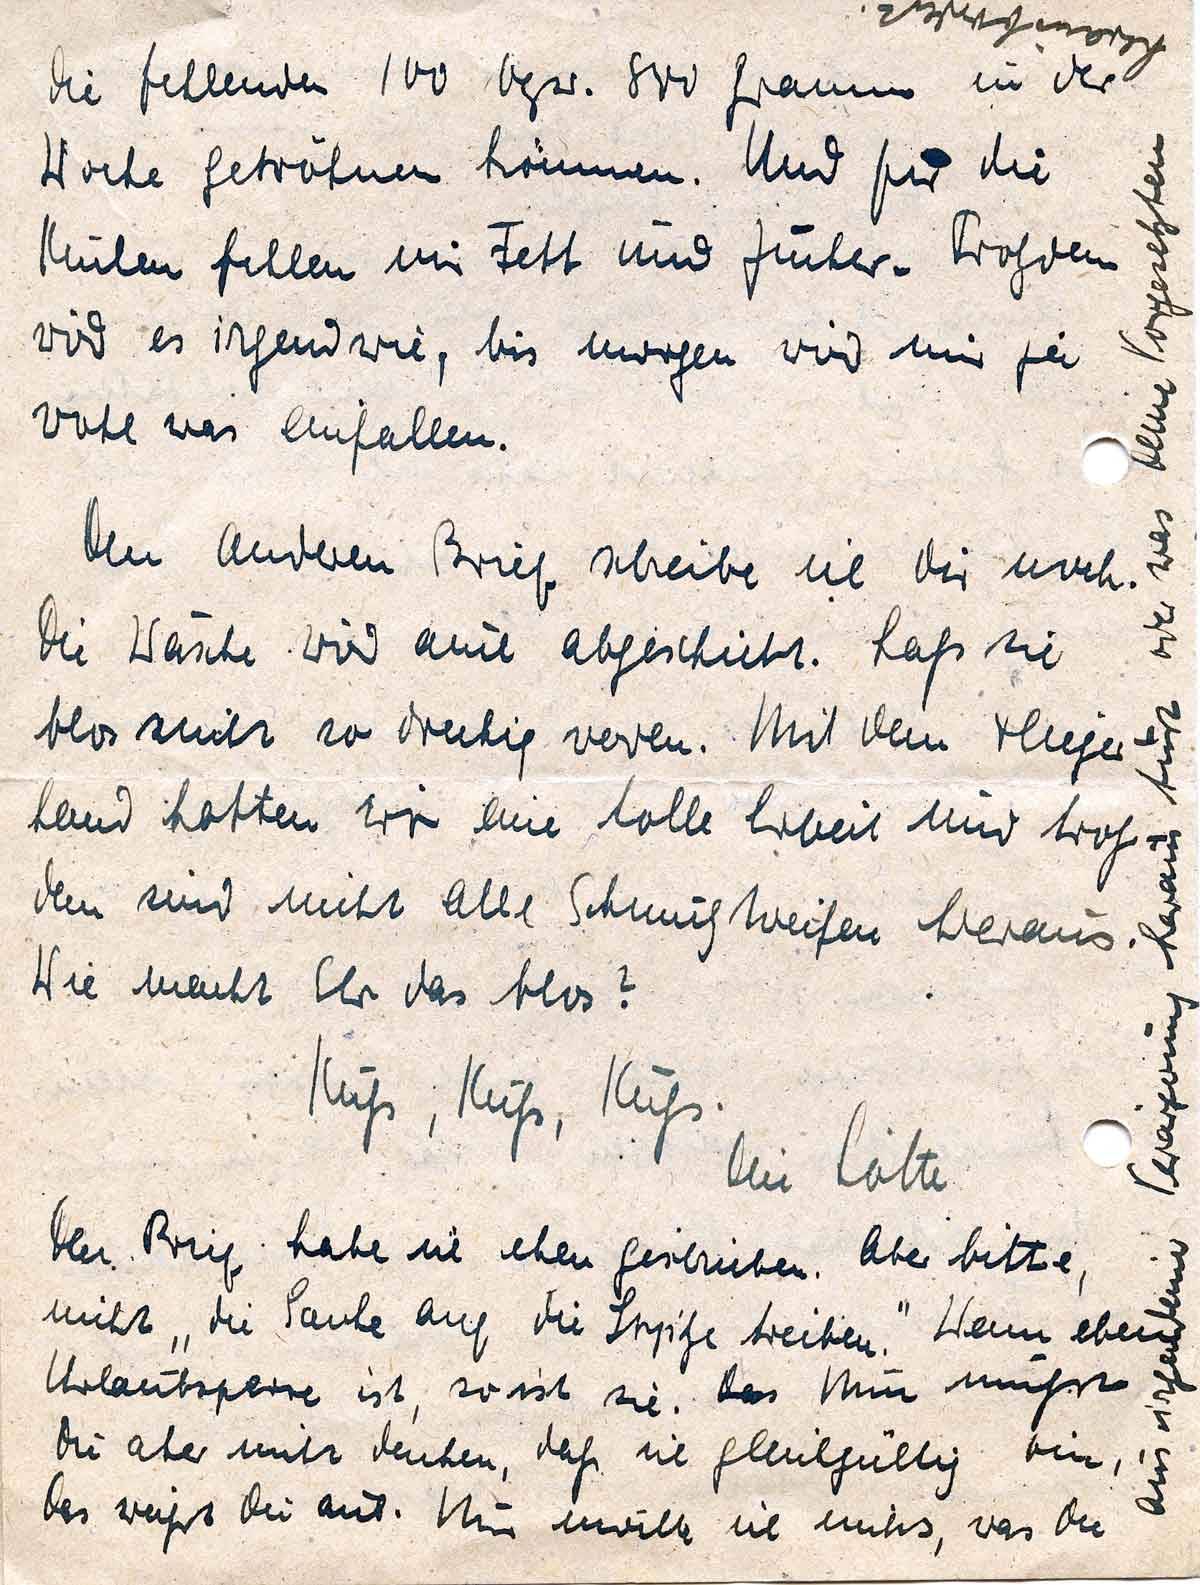 die fehlenden 100 bzw. 800 Gramm in der
Woche gewöhnen können. Und für die
Kuchen fehlen mir Fett und Zucker. Trotzdem
wird es irgendwie, bis morgen wird mir ja
wohl was einfallen.
Den anderen Brief schreibe ich dir noch.
Die Wäsche wird auch abgeschickt. Lass sie
blos nicht so dreckig werden. Mit dem Flieger
hemd hatten wir eine tolle Arbeit und trotz
dem sind nicht alle Schmutzstreifen heraus.
Wie macht Ihr das blos?
Kuß, Kuß, Kuß.
Dein Lotte
Den Brief habe ich eben geschrieben. Aber bitte,
nicht „die Sache auf die Spitze treiben." Wenn eben
Urlaubsperre ist, so ist sie. Das Nun mußt
Du aber nicht denken, daß ich gleichgültig bin,
das weißt Du auch. Nur möchte ich nicht, was Du
aus irgendeiner Verärgerung heraus tust oder was deine Vorgesetzten
herausfordert.